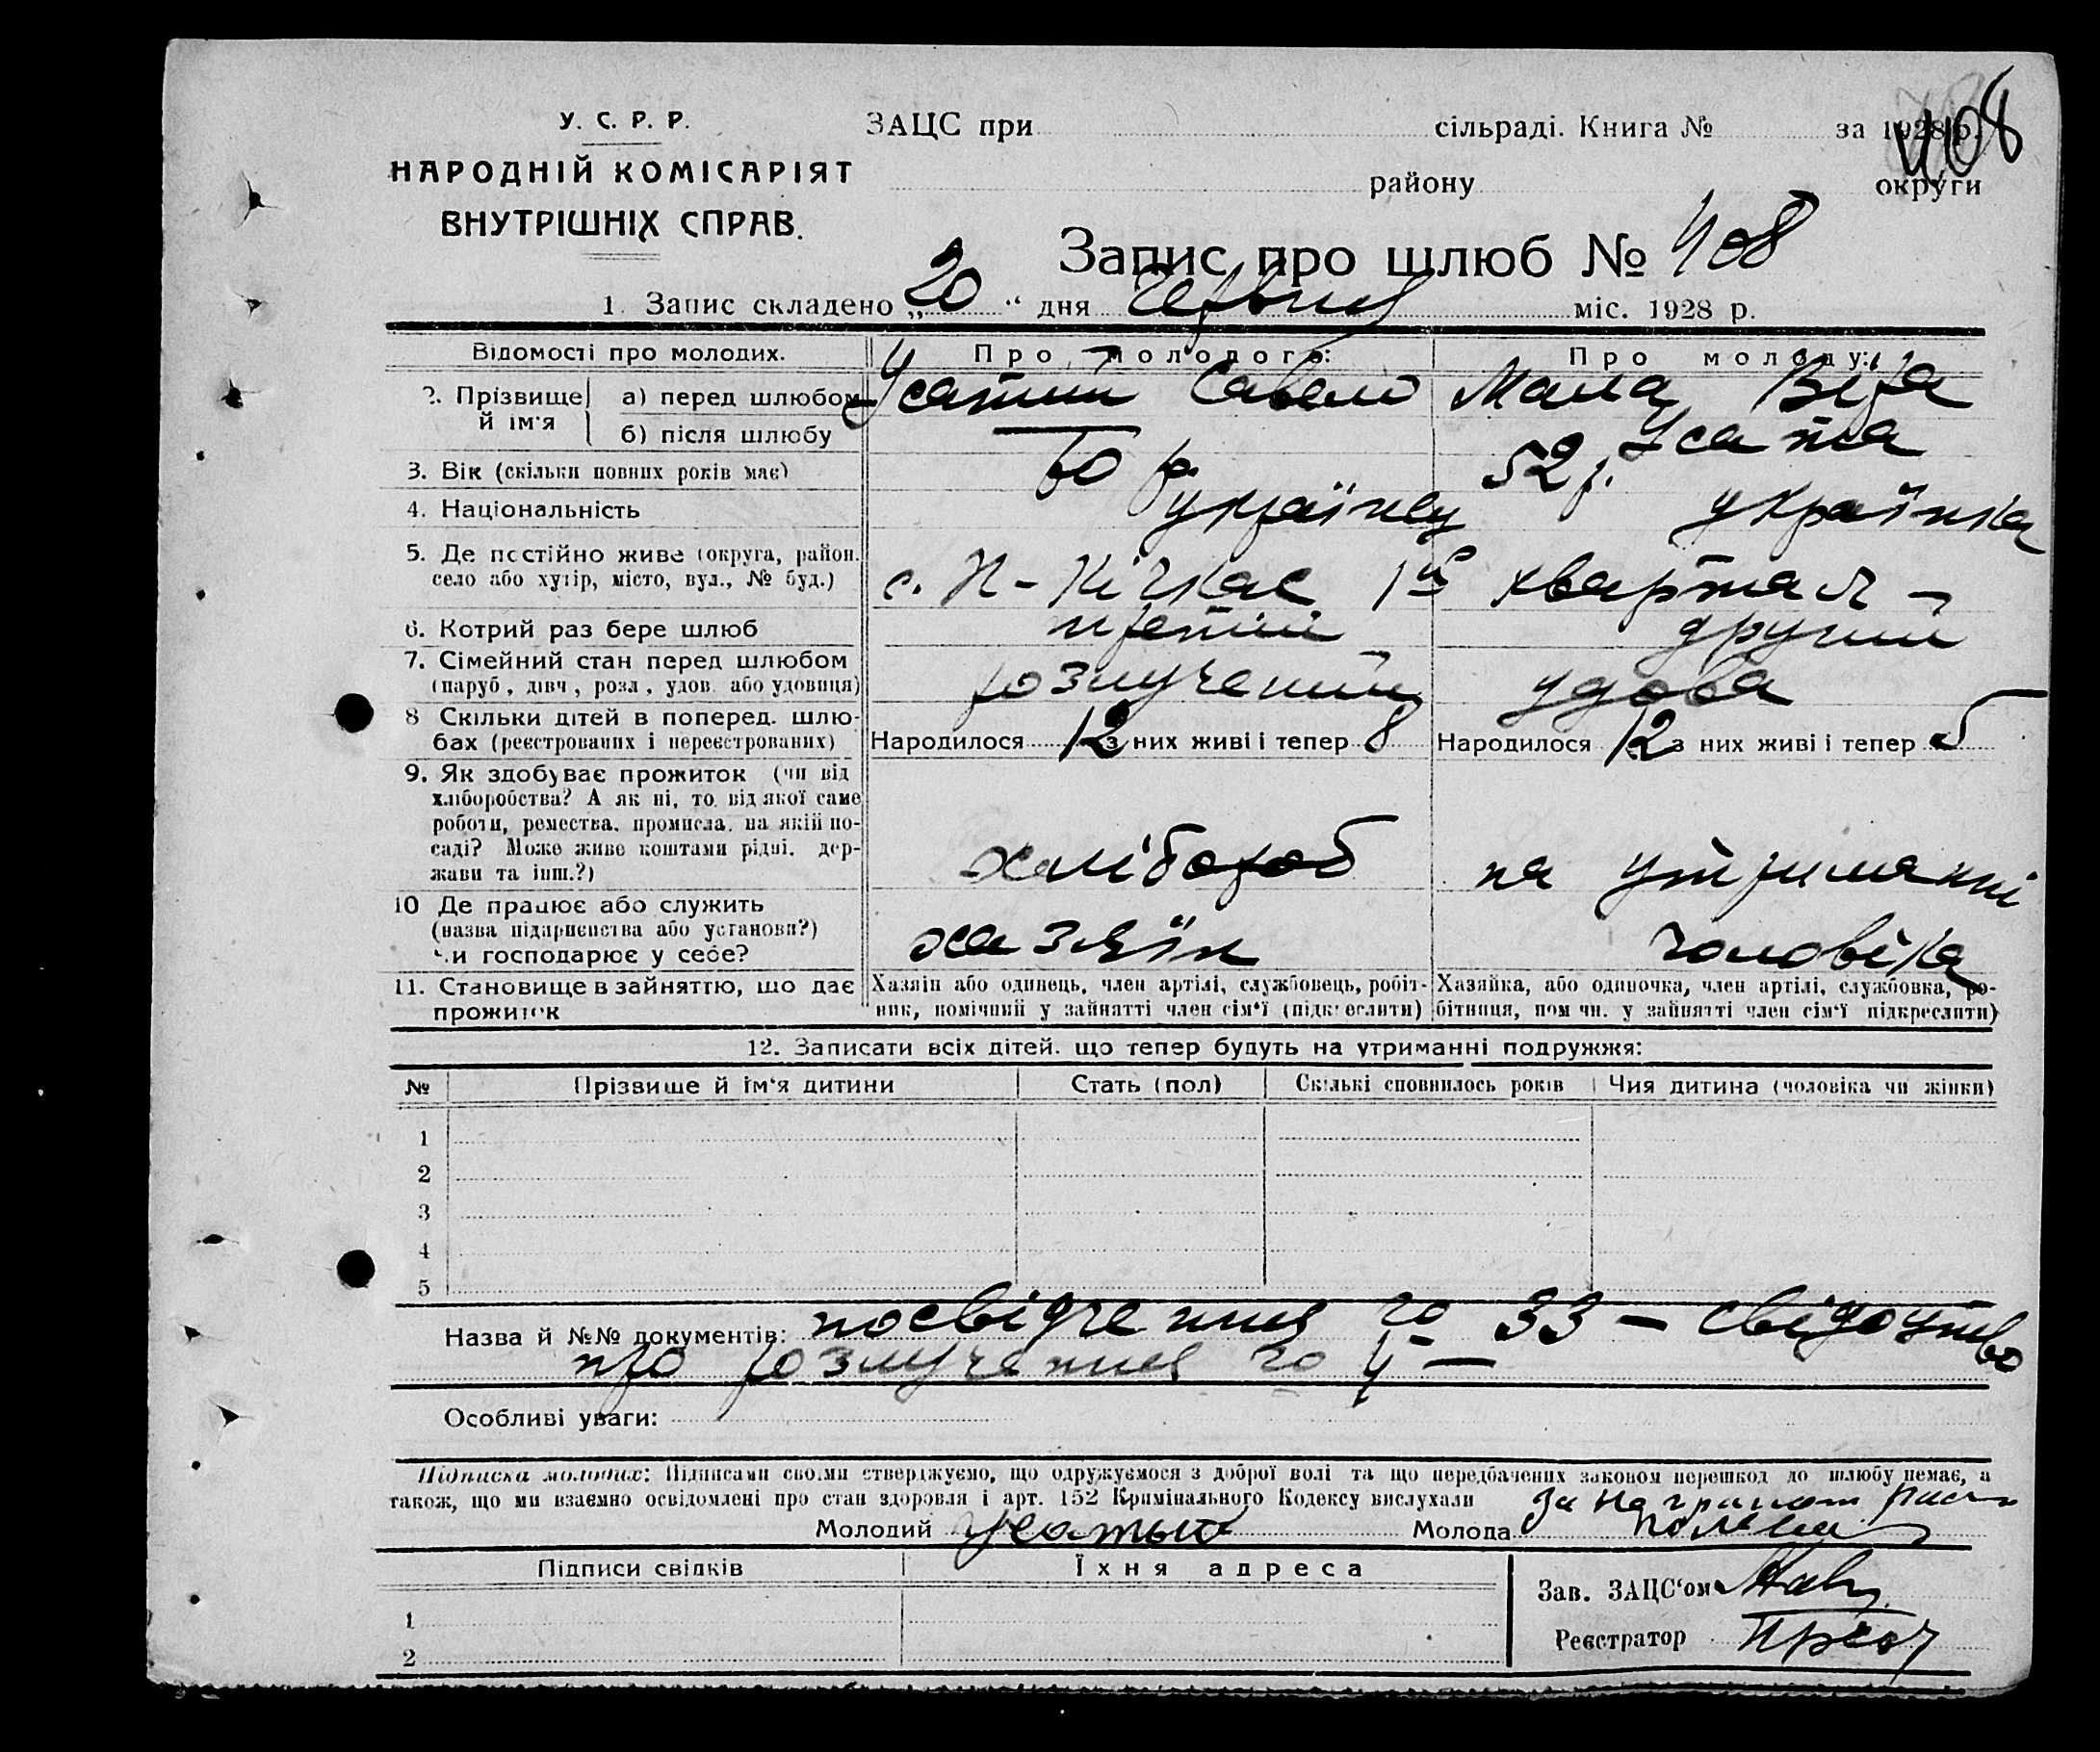 408
У. С. Р. Р.
НАРОДНІЙ КОМІСАРІЯТ
ВНУТРІШНІХ СПРАВ.
ЗАЦС при сільраді. Книга № за 1928 р.
району округи
Запис про шлюб № 408
1. Запис складено „20“ дня Червня міс. 1928 р.
Відомості про молодих. Про молодого: Про молоду:
2. Прізвище й ім'я
а) перед шлюбом Усатий Савелій Мала Віра
б) після шлюбу — Усата
3. Вік (скільки повних років має) 60 р. 52 р.
4. Національність українец українка
5. Де постійно живе (округа, район, село або хутір, місто, вул., № буд.) с. Н-Кічкас 1й квартал —
6. Котрий раз бере шлюб третій другий
7. Сімейний стан перед шлюбом (паруб, дівч, розл, удов. або удовиця) розлучений удова
8 Скільки дітей в поперед. шлюбах (реєстрованих і нереєстрованих) Народилося 12 з них живі і тепер 8 Народилося 12 з них живі і тепер 5
9. Як здобуває прожиток (чи від хліборобства? А як ні, то від якої саме роботи, ремества, промисла, на якій посаді? Може живе коштами рідні, держави та інш.?) хлібороб на утриманні
10 Де працює або служить (назва підприємства або установи?) чи господарює у себе? хазяїн чоловіка
11. Становище в зайняттю, що дає прожиток
Хазяїн або одинець, член артілі, службовець, робітник, помічний у зайнятті член сім'ї (підкреслити)
Хазяйка, або одиночка, член артілі, службовка, робітниця, помічн. у зайнятті член сім'ї підкреслити)
12. Записати всіх дітей, що тепер будуть на утриманні подружжя:
№ Прізвище й ім'я дитини Стать (пол) Скількі сповнилось років Чия дитина (чоловіка чи жінки)
1
2
3
4
5
Назва й №№ документів: посвідчення го 33 — свідоцтво
про розлучення го 4 —
Особливі уваги:
Підписка молодих: Підписами своїми стверджуємо, що одружуємося з доброї волі та що передбачених законом перешкод до шлюбу немає, а
також, що ми взаємно освідомлені про стан здоровля і арт. 152 Кримінального Кодексу вислухали
Молодий Усатый Молода За неграмот.
Підписи свідків Їхня адреса
Зав. ЗАЦС'ом
Реєстратор
1
2